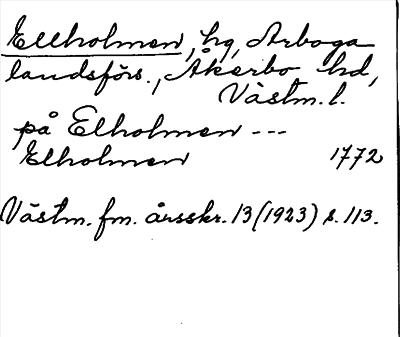 Ellholmen, hg, Arboga
landsförs., Åkerbo hd,
Västm. l.
på Elholmen ---
Elholmen 1772
Västm. fm. årsskr. 13 (1923) s. 113.